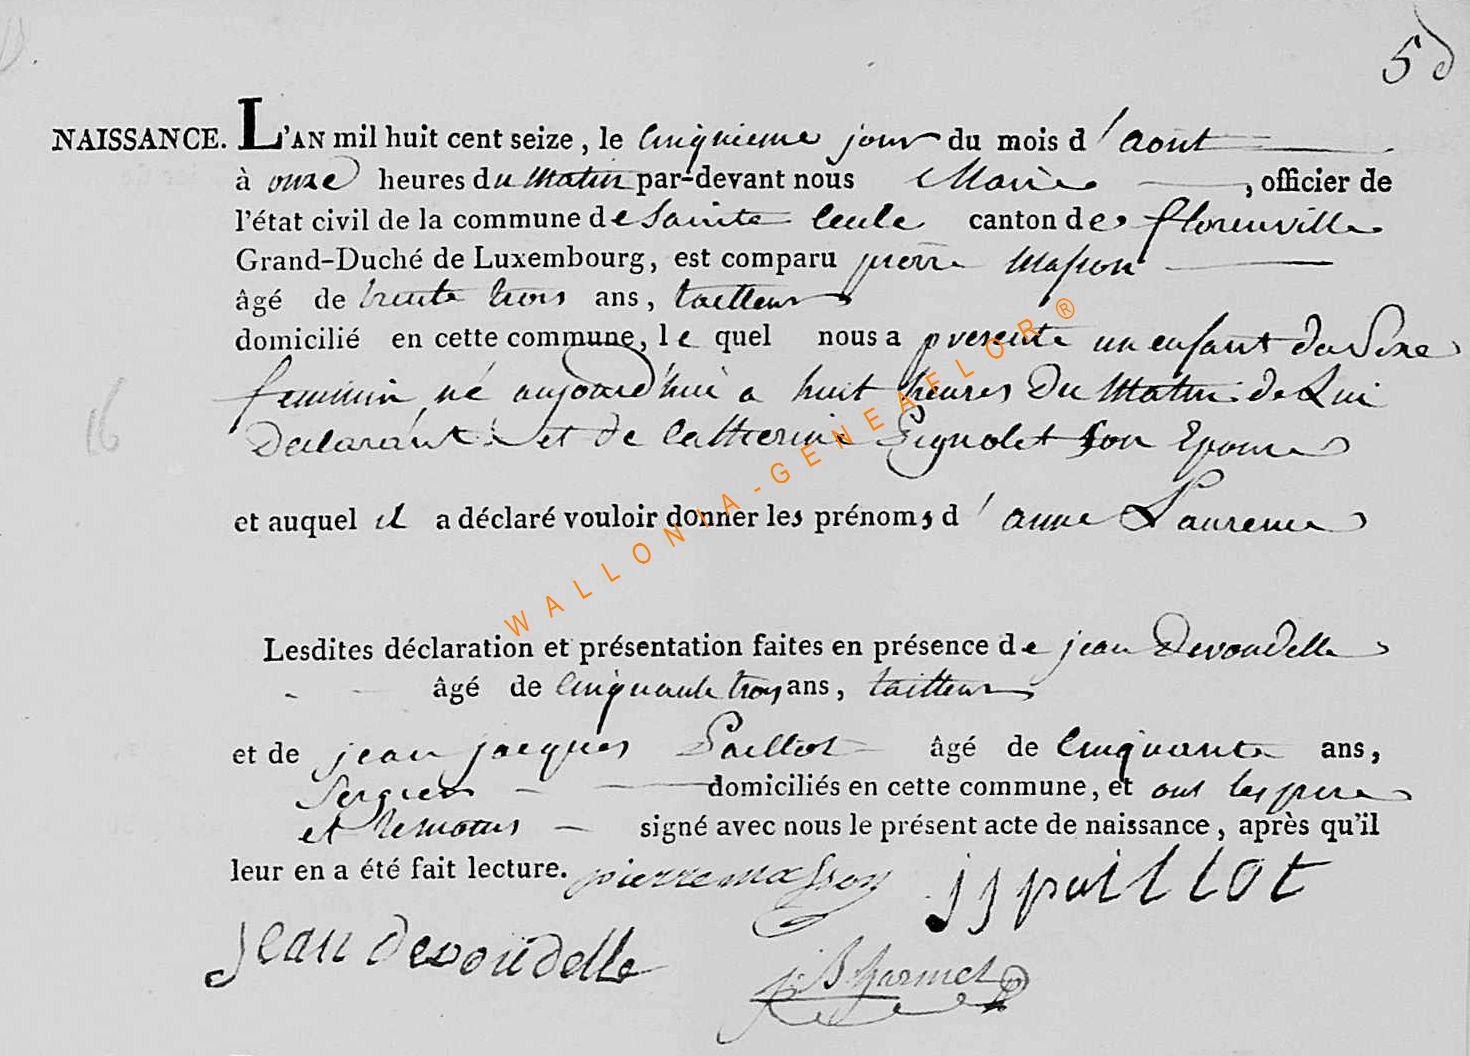 5
NAISSANCE. L'AN mil huit cent seize, le cinquieme jour du mois d'aout
à onze heures du matin par-devant nous Maire, officier de
l'état civil de la commune de Sainte Cecile canton de florenville
Grand-Duché de Luxembourg, est comparu pierre Masson
âgé de trente trois ans, tailleur
domicilié en cette commune, le quel nous a presenté un enfant du Sexe
feminin, né aujourd'hui a huit heures Du Matin de Lui
Declarant et de Catherine Gignolet son Epouse
et auquel il a déclaré vouloir donner les prénoms d'anne Laurence
WALLONIA-GENEAFLOR®
16
Lesdites déclaration et présentation faites en présence de jean Devoudelle
âgé de cinquante troys ans, tailleur
et de jean jacques Paillot âgé de cinquante ans,
Sergier domiciliés en cette commune, et ont les pere
et temoins signé avec nous le présent acte de naissance, après qu'il
leur en a été fait lecture. pierre masson jj paillot
jean devoudelle